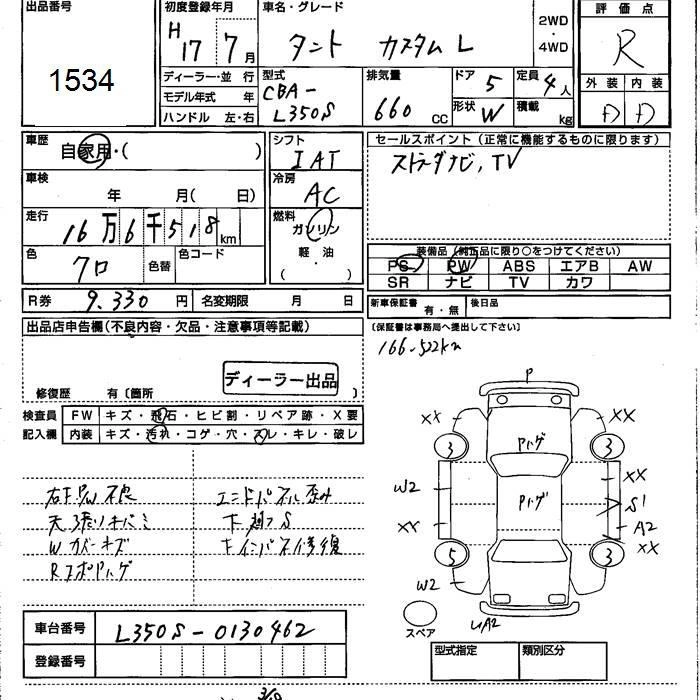 出品番号 初度登録年月 車名・グレード 2WD ・ 4WD 評価点
1534 H17 7月 タント カスタム L R
ディーラー・並行 型式 排気量 ドア 定員 外装 内装
モデル年式 年 CBA- 5 4人 D D
ハンドル 左・右 L350S 660 CC 形状 W 積載 kg
車歴 自家用・( ) シフト IAT セールスポイント(正常に機能するものに限ります)
車検 年 月( 日) 冷房 AC ストラーダナビ,TV
走行 16万6千518km 燃料 ガソリン
色 クロ 色替 色コード 軽・油 ( )
装備品(純正品に限り○をつけてください)
PS PW ABS エアB AW
SR ナビ TV カワ
R券 9.330円 名変期限 月 日 新車保証書 有・無 後日品
(保証書は事務局へ提出して下さい)
出品店申告欄(不良内容・欠品・注意事項等記載)
166,522km
ディーラー出品
修復歴 有〔箇所 〕
検査員 FW キズ・飛石・ヒビ割・リペア跡・X要
記入欄 内装 キズ・汚れ・コゲ・穴・スレ・キレ・破レ
右F P/W不良 エンドパネル歪み
天張りキバミ 下廻りS
Wカバーキズ
P
XX XX
3 Pハゲ 3
W2 Pハゲ XX
S1
XX A2
5 3 XX
W2
A2
スペア
車台番号 L350S-0130462
登録番号
型式指定 類別区分